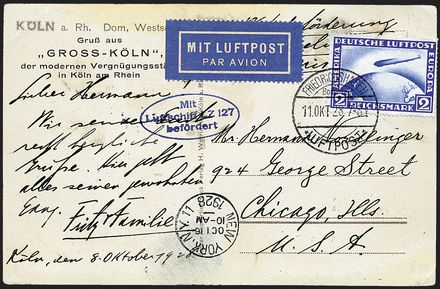 KÖLN a. Rh. Dom, Westse
Gruß aus
„GROSS-KÖLN",
der modernen Vergnügungsstä
in Köln am Rhein
MIT LUFTPOST
PAR AVION
DEUTSCHE LUFTPOST
EUROPA
AMERIKA
2 REICHSMARK 2
FRIEDRICHSHAFEN
11.OKT.28.7-8V
*LUFTPOST*
Mit
Luftschiff LZ 127
befördert
Lieber Hermann!
Wir senden
recht herzliche
Grüße.
alles
Fritz & Familie
Köln, den 8. Oktober 1928
NEW YORK, N.Y. 11
OCT 16
10-AM
1928
Mr Hermann
924 George Street
Chicago, Ills.
U.S.A